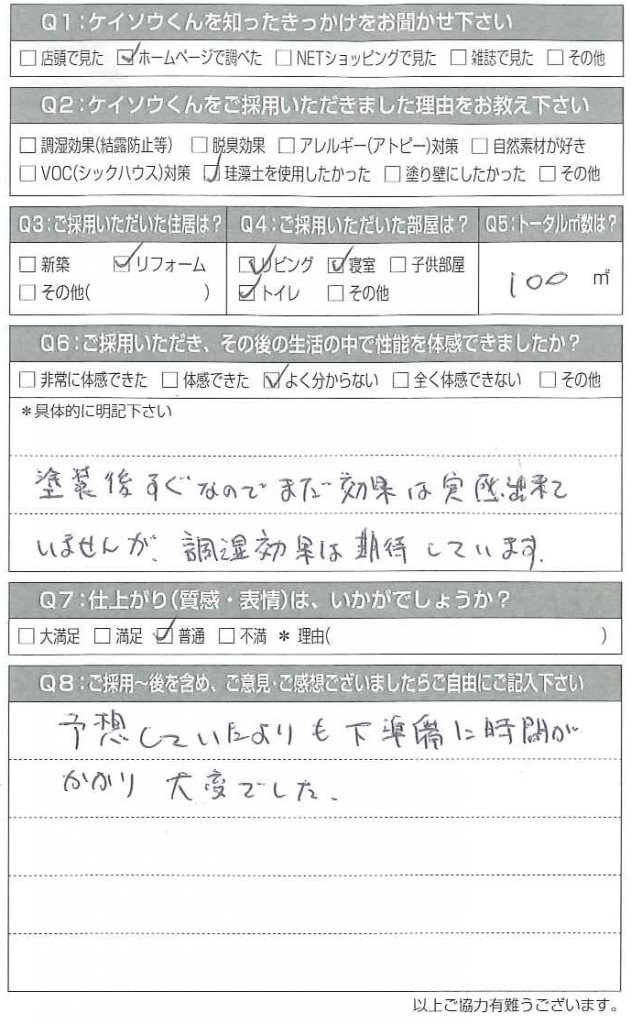 Q1：ケイソウくんを知ったきっかけをお聞かせ下さい
□ 店頭で見た ☑ ホームページで調べた □ NETショッピングで見た □ 雑誌で見た □ その他
Q2：ケイソウくんをご採用いただきました理由をお教え下さい
□ 調湿効果(結露防止等) □ 脱臭効果 □ アレルギー(アトピー)対策 □ 自然素材が好き
□ VOC(シックハウス)対策 ☑ 珪藻土を使用したかった □ 塗り壁にしたかった □ その他
Q3：ご採用いただいた住居は？ Q4：ご採用いただいた部屋は？ Q5：トータル㎡数は？
□ 新築 ☑ リフォーム ☑ リビング ☑ 寝室 □ 子供部屋 100 ㎡
□ その他( ) ☑ トイレ □ その他
Q6：ご採用いただき、その後の生活の中で性能を体感できましたか？
□ 非常に体感できた □ 体感できた ☑ よく分からない □ 全く体感できない □ その他
＊具体的に明記下さい
塗装後すぐなのでまだ効果は実感出来て
いませんが、調湿効果は期待しています.
Q7：仕上がり(質感・表情)は、いかがでしょうか？
□ 大満足 □ 満足 ☑ 普通 □ 不満 ＊ 理由( )
Q8：ご採用～後を含め、ご意見・ご感想ございましたらご自由にご記入下さい
予想していたよりも下準備に時間が
かかり 大変でした.
以上ご協力有難うございます。